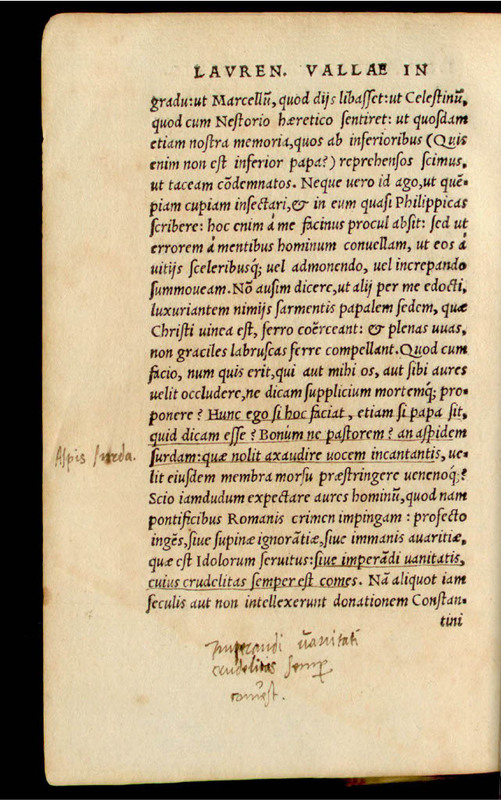 LAVREN. VALLAE IN
gradu:ut Marcellũ, quod dijs libaſſet: ut Celeſtinũ,
quod cum Neſtorio hæretico ſentiret: ut quoſdam
etiam noſtra memoria,quos ab inferioribus (Quis
enim non eſt inferior papa?) reprehenſos ſcimus,
ut taceam cõdemnatos. Neque uero id ago,ut quẽ-
piam cupiam inſectari,& in eum quaſi Philippicas
ſcribere: hoc enim á me facinus procul abſit: ſed ut
errorem á mentibus hominum conuellam, ut eos á
uitijs ſceleribusq́; uel admonendo, uel increpando
ſummoueam. Nõ auſim dicere,ut alij per me edocti,
luxuriantem nimijs ſarmentis papalem ſedem, quæ
Chriſti uinea eſt, ferro coërceant: & plenas uuas,
non graciles labruſcas ferre compellant. Quod cum
facio, num quis erit,qui aut mihi os, aut ſibi aures
uelit occludere,ne dicam ſupplicium mortemq́; pro-
ponere? Hunc ego ſi hoc faciat, etiam ſi papa ſit,
quid dicam eſſe? Bonum ne paſtorem? an aſpidem
Aſpis ſurda.
ſurdam: quæ nolit axaudire uocem incantantis, ue-
lit eiuſdem membra morſu præſtringere uenenoq́;?
Scio iamdudum expectare aures hominũ,quod nam
pontificibus Romanis crimen impingam: profecto
ingẽs,ſiue ſupinæ ignorãtiæ,ſiue immanis auaritiæ,
quæ eſt Idolorum ſeruitus:ſiue imperãdi uanitatis,
cuius crudelitas ſemper eſt comes. Nã aliquot iam
ſeculis aut non intellexerunt donationem Conſtan-
tini
Imperandi vanitati
crudelitas ſemper
comes eſt.